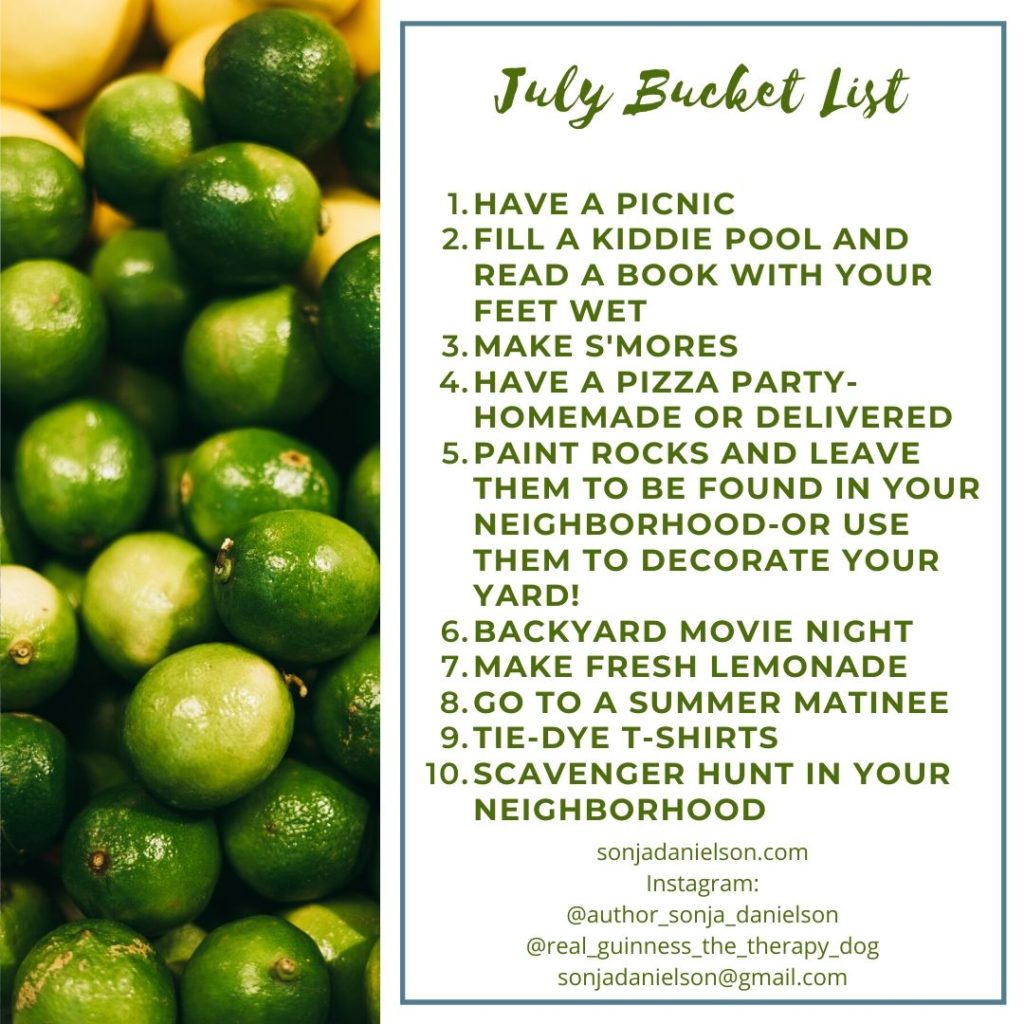 July Bucket List
1. HAVE A PICNIC
2. FILL A KIDDIE POOL AND
READ A BOOK WITH YOUR
FEET WET
3. MAKE S'MORES
4. HAVE A PIZZA PARTY-
HOMEMADE OR DELIVERED
5. PAINT ROCKS AND LEAVE
THEM TO BE FOUND IN YOUR
NEIGHBORHOOD-OR USE
THEM TO DECORATE YOUR
YARD!
6. BACKYARD MOVIE NIGHT
7. MAKE FRESH LEMONADE
8. GO TO A SUMMER MATINEE
9. TIE-DYE T-SHIRTS
10. SCAVENGER HUNT IN YOUR
NEIGHBORHOOD
sonjadanielson.com
Instagram:
@author_sonja_danielson
@real_guinness_the_therapy_dog
sonjadanielson@gmail.com